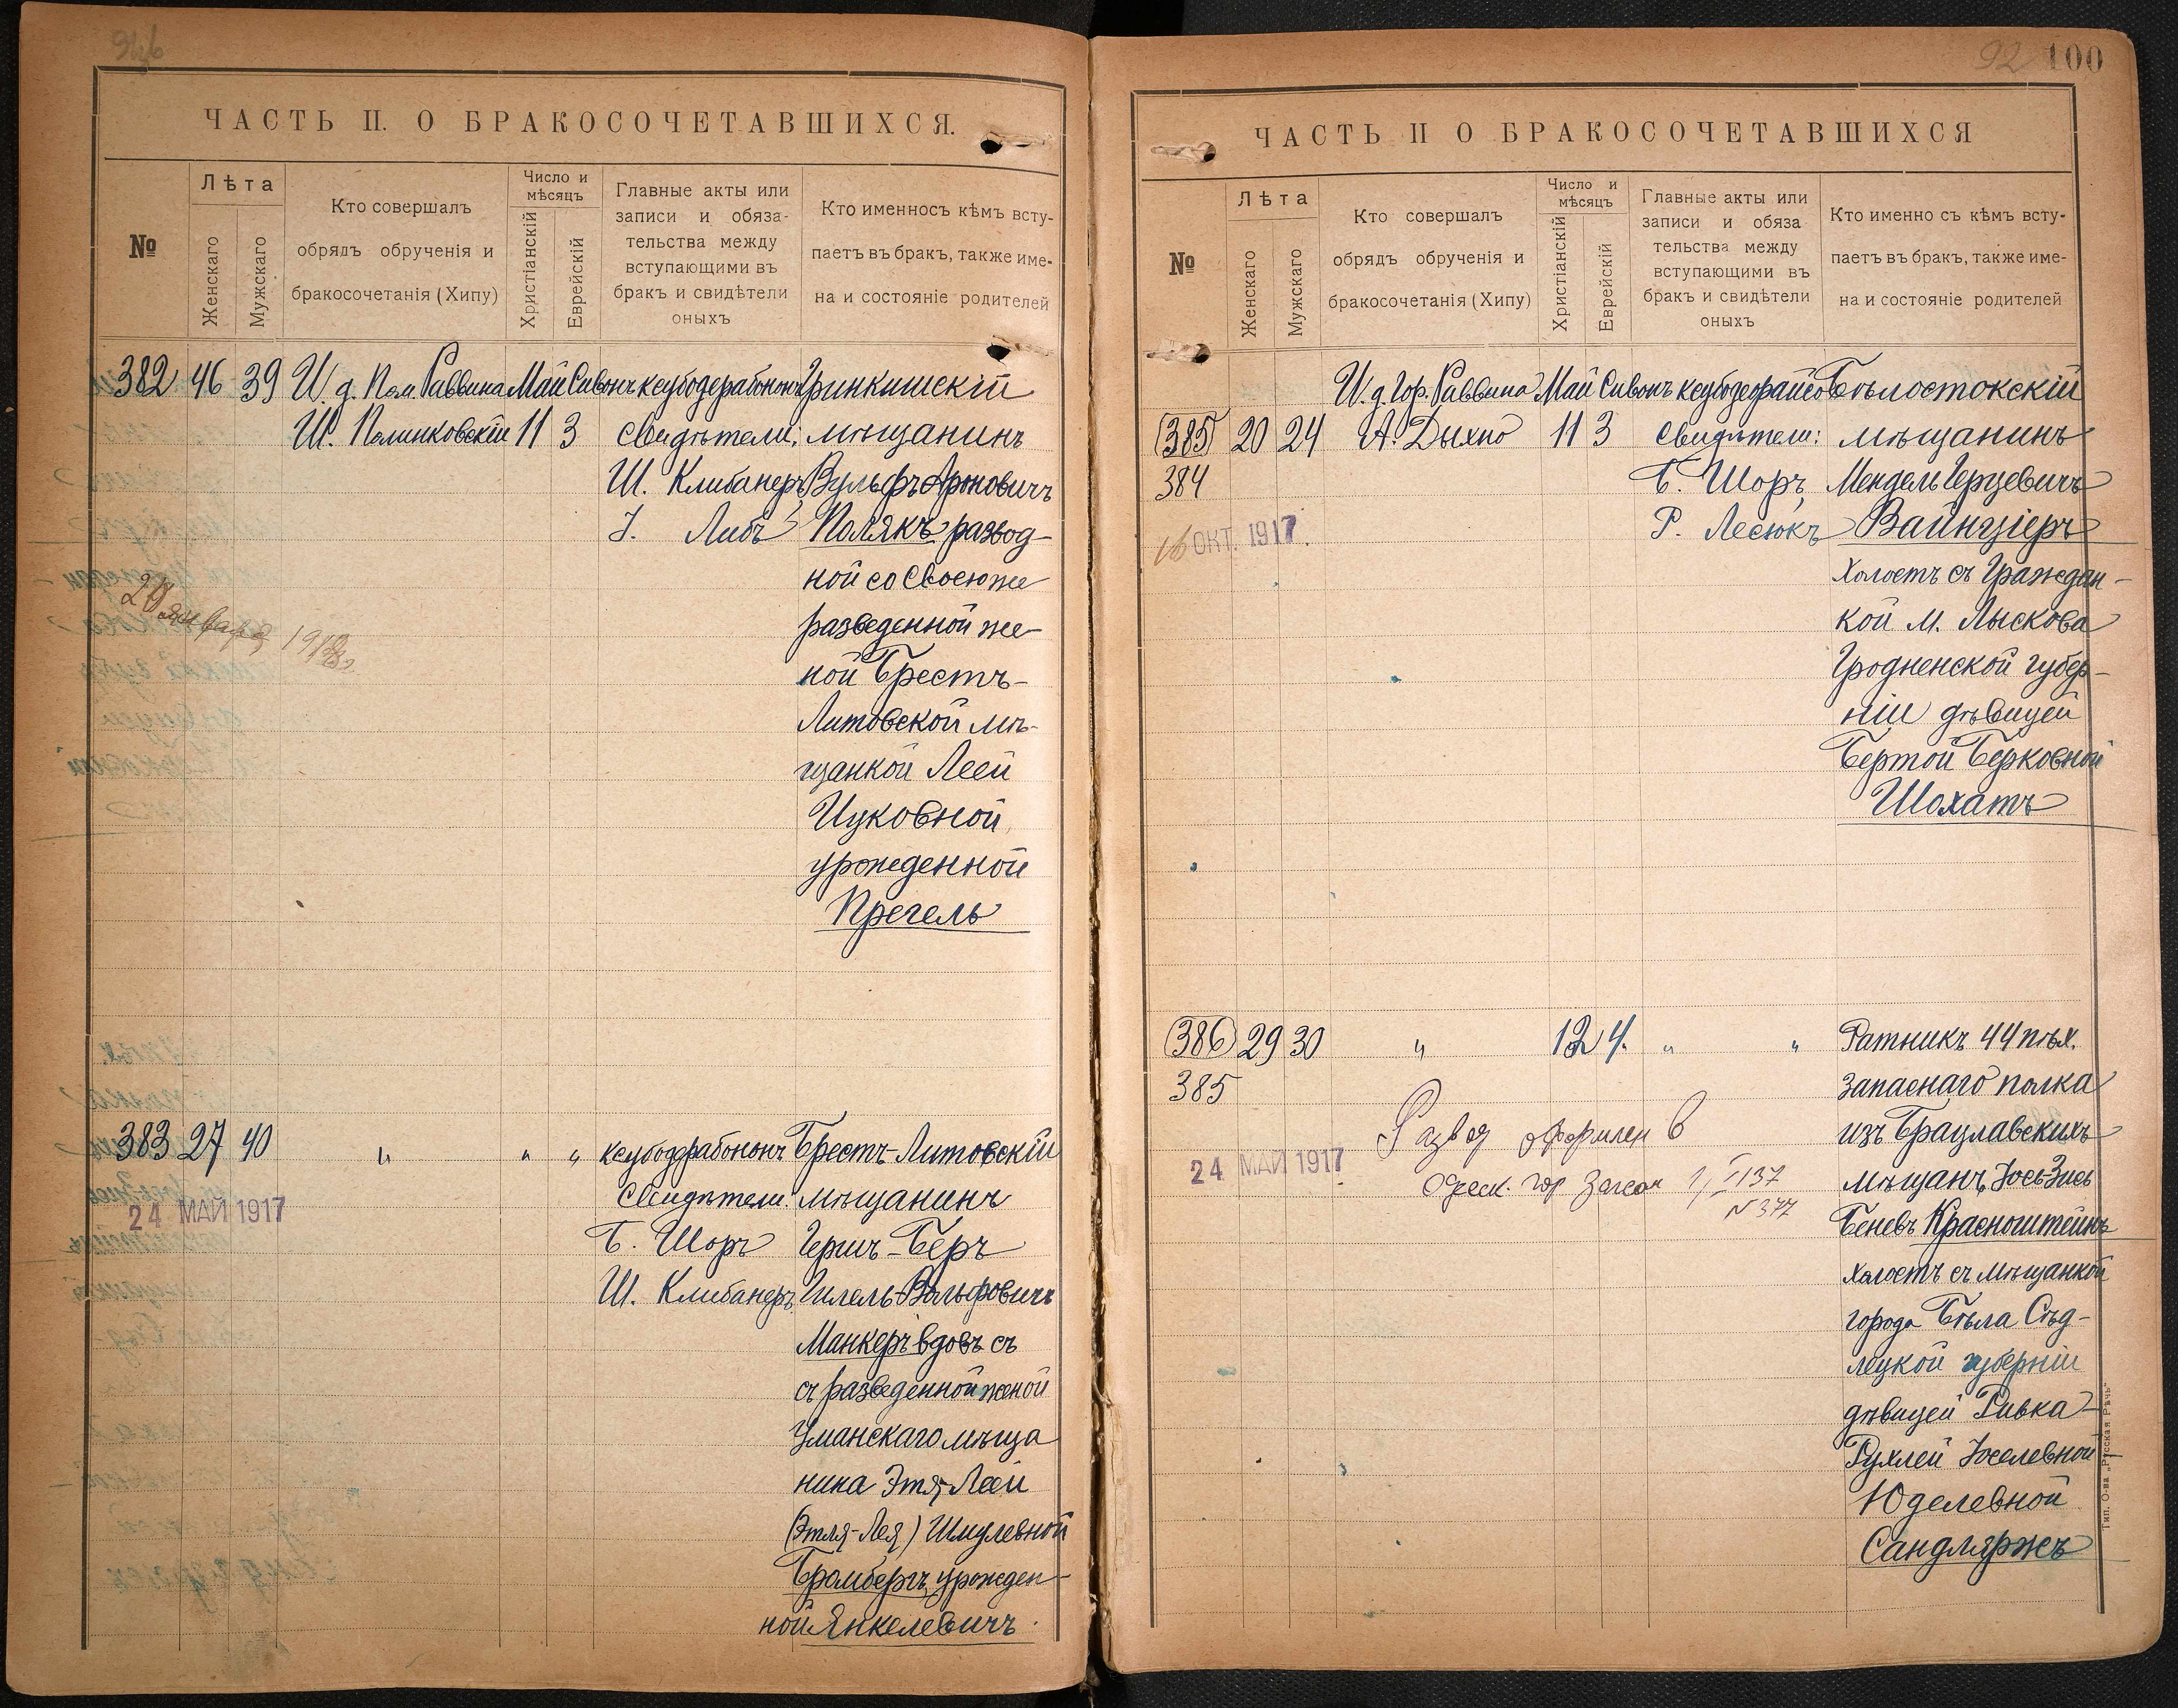 ЧАСТЬ II. О БРАКОСОЧЕТАВШИХСЯ.
№
Лѣта
Женскаго
Мужскаго
Кто совершалъ
обрядъ обрученія и
бракосочетанія (Хипу)
Число и
мѣсяцъ
Христіанскій
Еврейскій
Главные акты или
записи и обяза-
тельства между
вступающими въ
бракъ и свидѣтели
оныхъ
Кто именносъ кѣмъ всту-
паетъ въ бракъ, также име-
на и состояніе родителей
382 46 39 И. д. Пом. Раввина Май Сивонъ ксубодерабононъ Гринкишскій
Ш. Полинковскій 11 3 Свидѣтели: мѣщанинъ
Ш. Клибанеръ Вульфъ Ароновичъ
І. Либъ Полякъ развод-
ной со своею же
разведенной же-
ной Брестъ-
Литовской мѣ-
щанкой Леей
Ицковной
урожденной
Прегель
20 января 1918
383 27 40 " " " ксубодерабононъ Брестъ-Литовскій
Свидѣтели: мѣщанинъ
24 МАЙ 1917
Б. Шоръ Гершъ-Беръ
Ш. Клибанеръ Гилель-Вольфовичъ
Манкеръ вдовъ съ
съ разведенной женой
Уманскаго мѣща
нина Этя-Леей
(Этля-Лея) Шмулевной
Бромбергъ, урожден-
ной Янкелевичъ.
92 100
ЧАСТЬ II О БРАКОСОЧЕТАВШИХСЯ
№
Лѣта
Женскаго
Мужскаго
Кто совершалъ
обрядъ обрученія и
бракосочетанія (Хипу)
Число и
мѣсяцъ
Христіанскій
Еврейскій
Главные акты или
записи и обяза
тельства между
вступающими въ
бракъ и свидѣтели
оныхъ
Кто именно съ кѣмъ всту-
паетъ въ бракъ, также име-
на и состояніе родителей
И. д. Гор. Раввина Май Сивонъ Бѣлостокскій
(385) 20 24 А. Дыхно 11 3 Свидѣтели: мѣщанинъ
384 Б. Шоръ, Мендель Герцевичъ
16 ОКТ. 1917. Р. Лесюкъ Вайнціеръ
холостъ съ граждан-
кой м. Лыскова
Гродненской губер-
ніи дѣвицей
Бертой Берковной
Шохатъ
(386) 29 30 " 12 4. " " Ратникъ 44 пѣх.
385 запаснаго полка
Развод оформлен в изъ Брацлавскихъ
24 МАЙ 1917 Одесск. гор Загсом 37 мѣщанъ Іось-Зись
N 377 Беневъ Красноштейнъ
холостъ съ мѣщанкой
города Бѣла Сѣд-
лецкой губерніи
дѣвицей Ривка-
Рухлей Іоселевной-
Юделевной
Сандляржъ
Тип. О-ва „Русская Рѣчь“